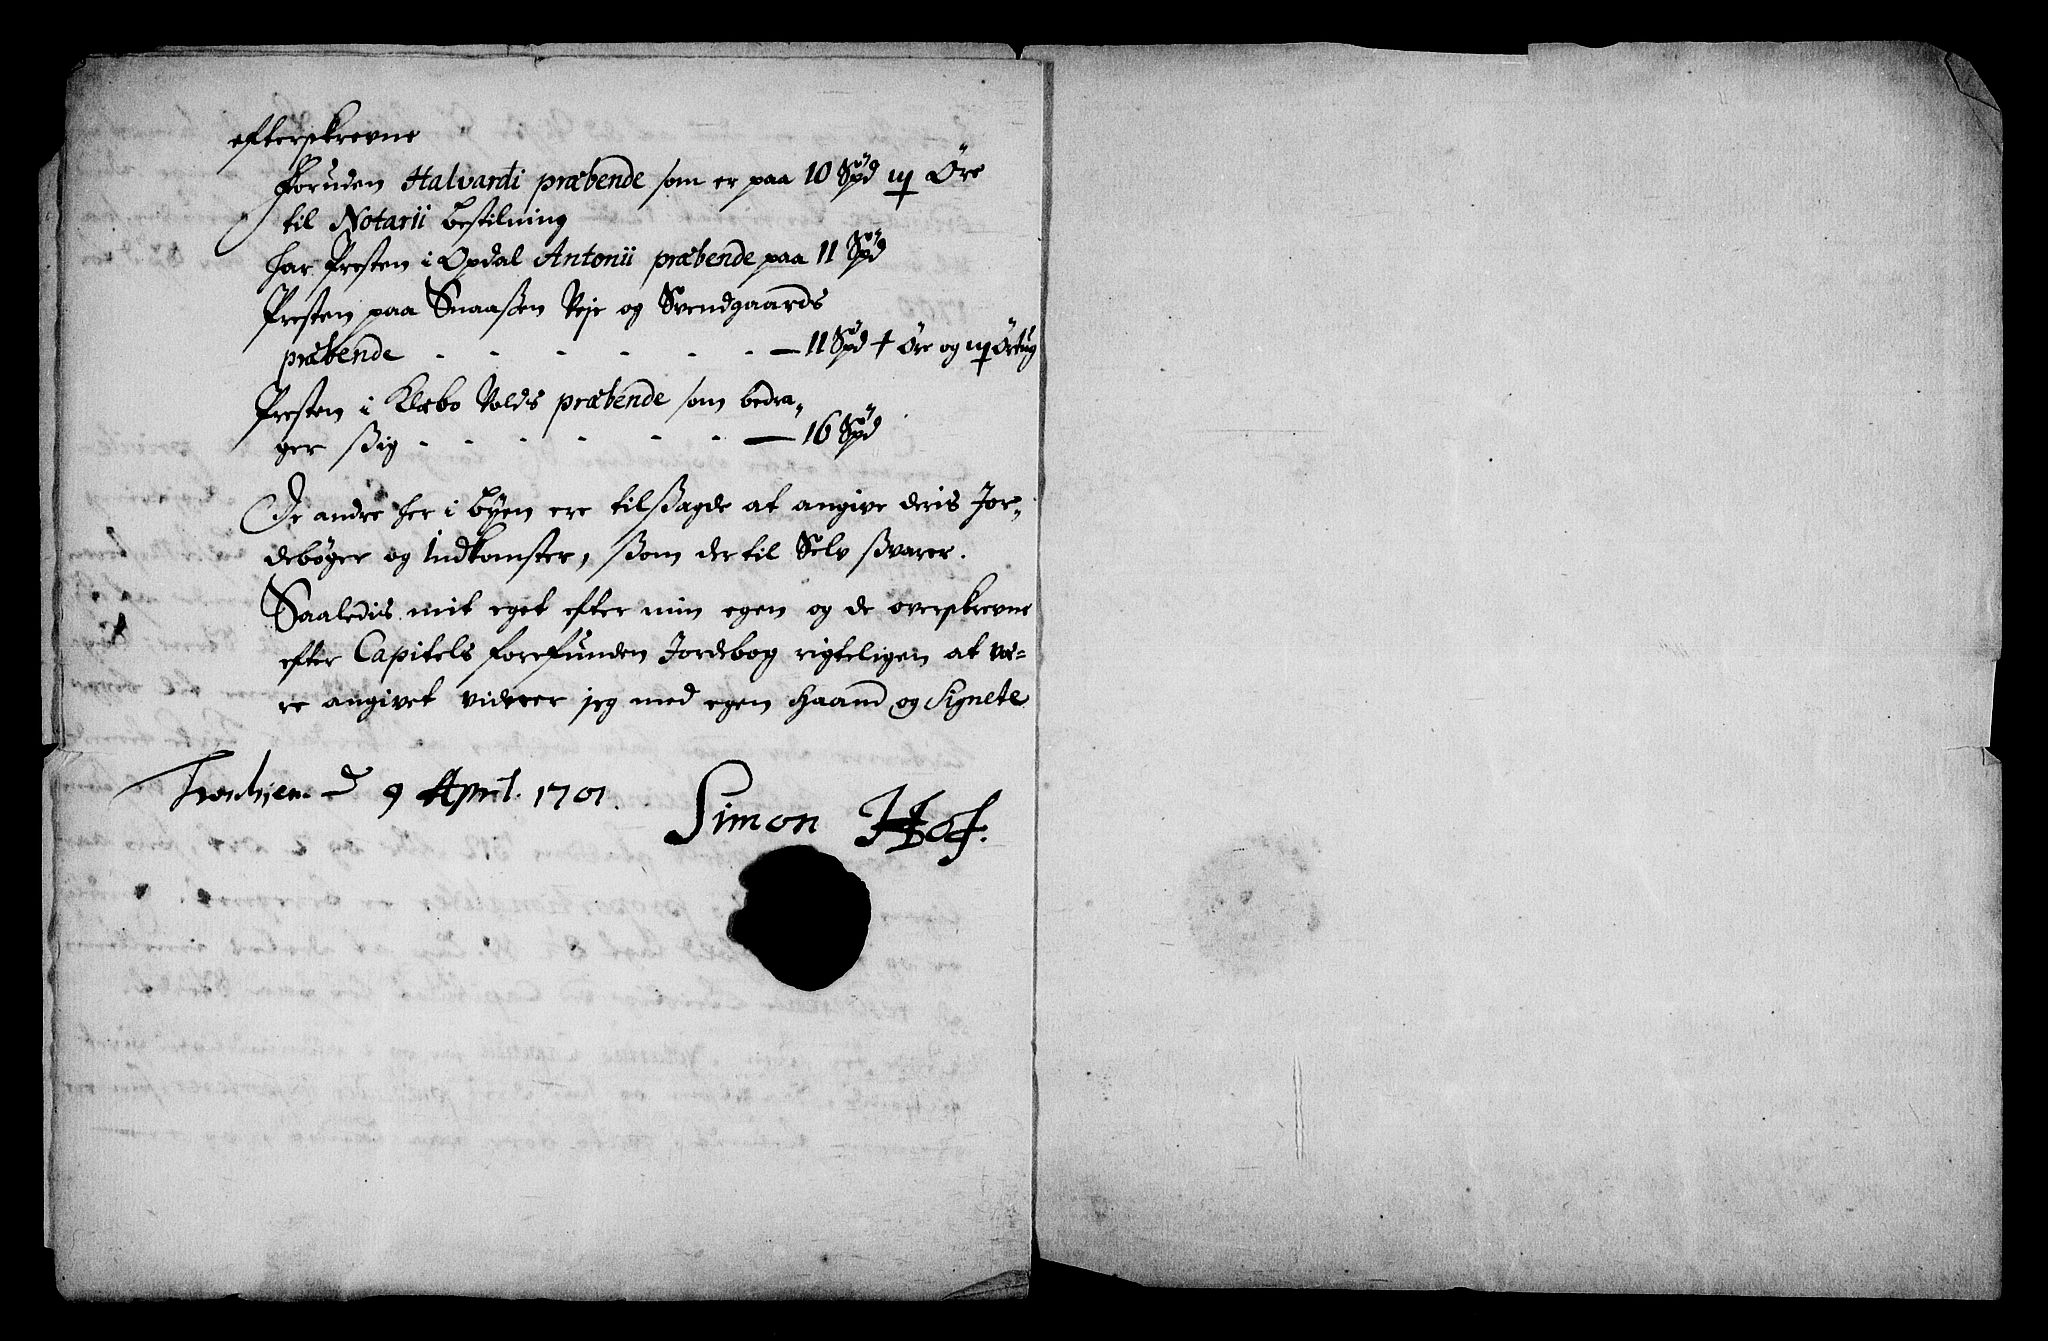 efterskrevne
Foruden Halvardi præbende som er paa 10 Spd ɥ Öre
til Notarii bestilning
har Presten i Opdal Antonii præbende paa 11 Spd
Presten paa Snaaßen Veje og Svendgaards
præbende - - - - - - — 11 Spd + Öre og ɥ Örtug
Presten i Klæbo Volds præbende som bedra-
ger ßig - - - - - - — 16 Spd
De andre her i Byen ere tilßagde at angive deris Jor-
debøger og Indkomster, ßom der til Selv ßvarer.
Saaledis mit eget efter min egen og de overskrevne
efter Capitels forefunden Jordebog rigteligen at væ-
re angivet vidner jeg med egen Haand og Signete
Tronhjem d 9 April. 1701.
Simon Hof.